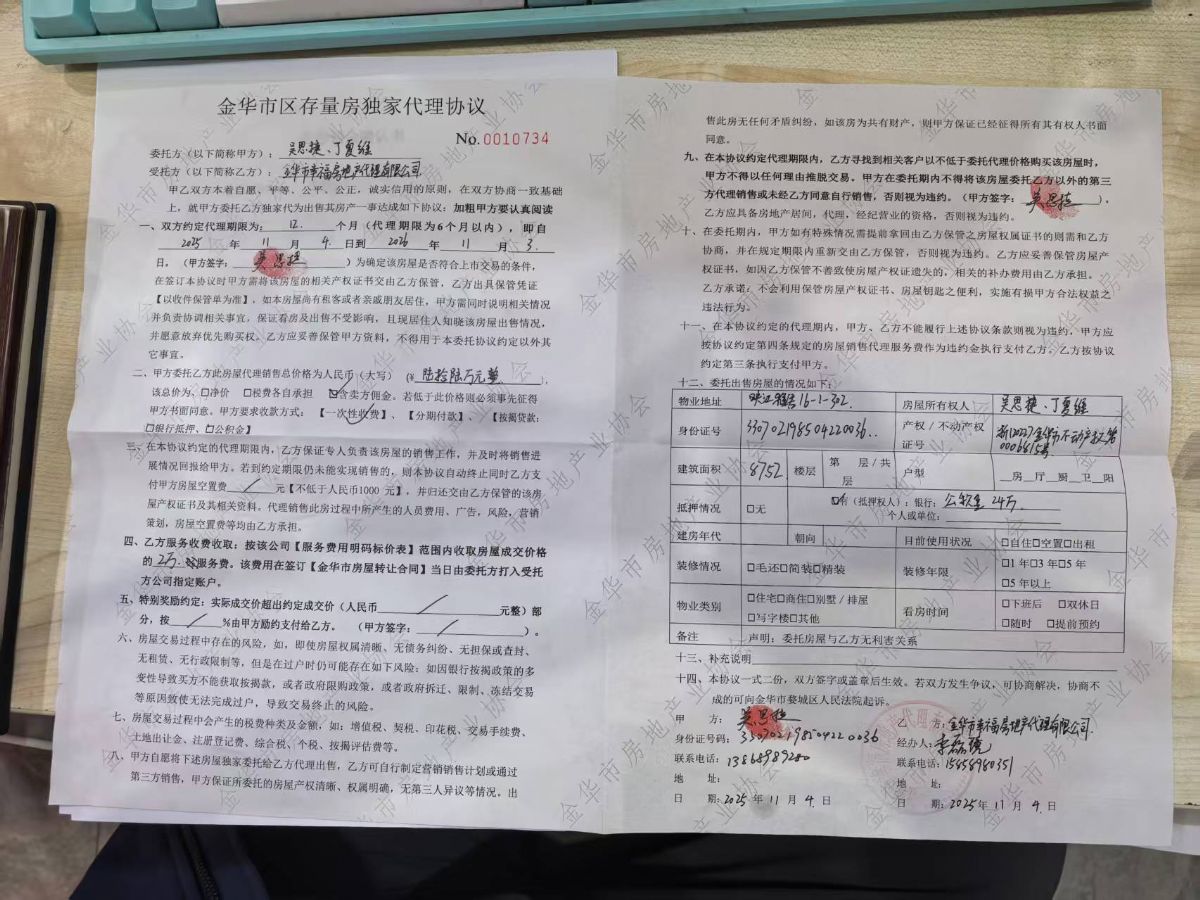 金华市区存量房独家代理协议
No.0010734
委托方（以下简称甲方）：吴思捷、丁夏维
受托方（以下简称乙方）：金华市幸福房地产代理有限公司
甲乙双方本着自愿、平等、公平、公正，诚实信用的原则，在双方协商一致基础
上，就甲方委托乙方独家代为出售其房产一事达成如下协议：加粗甲方要认真阅读
一、双方约定代理期限为：12.个月（代理期限为6个月以内），即自
2025 年 11 月 4 日到 2026 年 11 月 3.
日，（甲方签字：吴思捷）为确定该房屋是否符合上市交易的条件，
在签订本协议时甲方需将该房屋的相关产权证书交由乙方保管，乙方出具保管凭证
【以收件保管单为准】，如本房屋尚有租客或者亲戚朋友居住，甲方需同时说明相关情况
并负责协调相关事宜，保证看房及出售不受影响，且现居住人知晓该房屋出售情况，
并愿意放弃优先购买权。乙方应妥善保管甲方资料，不得用于本委托协议约定以外其
它事宜。
二、甲方委托乙方此房屋代理销售总价格为人民币（大写）（¥陆拾陆万元整），
该总价为、□净价 □税费各自承担 ☑含卖方佣金。若低于此价格则必须事先征得
甲方书面同意。甲方要求收款方式：【一次性收费】、【分期付款】、【按揭贷款：
□银行抵押、□公积金】
三、在本协议约定的代理期限内，乙方保证专人负责该房屋的销售工作，并及时将销售进
展情况回报给甲方。若到约定期限仍未能实现销售的，则本协议自动终止同时乙方支
付甲方房屋空置费 / 元【不低于人民币1000 元】，并归还交由乙方保管的该房
屋产权证书及其相关资料。代理销售此房过程中所产生的人员费用、广告，风险，营销
策划，房屋空置费等均由乙方承担。
四、乙方服务收费收取：按该公司【服务费用明码标价表】范围内收取房屋成交价格
的 2万. 服务费。该费用在签订【金华市房屋转让合同】当日由委托方打入受托
方公司指定账户。
五、特别奖励约定：实际成交价超出约定成交价（人民币 / 元整）部
分，按 / %由甲方励约支付给乙方。（甲方签字： / ）。
六、房屋交易过程中存在的风险，如，即使房屋权属清晰、无债务纠纷、无担保或查封、
无租赁、无行政限制等，但是在过户时仍可能存在如下风险：如因银行按揭政策的多
变性导致买方不能获取按揭款，或者政府限购政策，或者政府拆迁、限制、冻结交易
等原因致使无法完成过户，导致交易终止的风险。
七、房屋交易过程中会产生的税费种类及金额，如：增值税、契税、印花税、交易手续费、
土地出让金、注册登记费、综合税、个税、按揭评估费等。
八、甲方自愿将下述房屋独家委托给乙方代理出售，乙方可自行制定营销销售计划或通过
第三方销售，甲方保证所委托的房屋产权清晰、权属明确，无第三人异议等情况，出
售此房无任何矛盾纠纷，如该房为共有财产，则甲方保证已经征得所有其有权人书面
同意。
九、在本协议约定代理期限内，乙方寻找到相关客户以不低于委托代理价格购买该房屋时，
甲方不得以任何理由推脱交易。甲方在委托期内不得将该房屋委托乙方以外的第三
方代理销售或未经乙方同意自行销售，否则视为违约。（甲方签字：吴思捷），
乙方应具备房地产居间，代理，经纪营业的资格，否则视为违约。
十、在委托期内，甲方如有特殊情况需提前拿回由乙方保管之房屋权属证书的则需和乙方
协商，并在规定期限内重新交由乙方保管，否则视为违约。乙方应妥善保管房屋产
权证书，如因乙方保管不善致使房屋产权证遗失的，相关的补办费用由乙方承担。
乙方承诺：不会利用保管房屋产权证书、房屋钥匙之便利，实施有损甲方合法权益之
违法行为。
十一、在本协议约定的代理期内，甲方、乙方不能履行上述协议条款则视为违约。甲方应
按协议约定第四条规定的房屋销售代理服务费作为违约金执行支付乙方。乙方按协议
约定第三条执行支付甲方。
十二、委托出售房屋的情况如下：
物业地址 16-1-302. 房屋所有权人 吴思捷、丁夏维
身份证号 330702198504220036.. 产权 / 不动产权证号 浙(2022)金华市不动产权第0006815号
建筑面积 87.52 楼层 第 层 / 共 层 户型 _房_厅_厨_卫_阳
抵押情况 □无 ☑有（抵押权人）：银行：公积金 24万.
个人或单位：
建房年代 朝向 目前使用状况 □自住□空置□出租
装修情况 □毛还□简装□精装 装修年限 □1 年□3 年□5 年
□5 年以上
物业类别 □住宅□商住□别墅 / 排屋 看房时间 □下班后 □双休日
□写字楼□其他 □随时 □提前预约
备注 声明：委托房屋与乙方无利害关系
十三、补充说明
十四、本协议一式二份，双方签字或盖章后生效。若双方发生争议，可协商解决，协商不
成的可向金华市婺城区人民法院起诉。
甲 方：吴思捷 乙 方：金华市幸福房地产代理有限公司
身份证号码：330702198504220036 经办人：
联系电话：13868989280 联系电话：15458980351
地 址： 地 址：
日 期：2025 年 11 月 4 日 日 期：2025 年 11 月 4 日
金华市房地产业协会